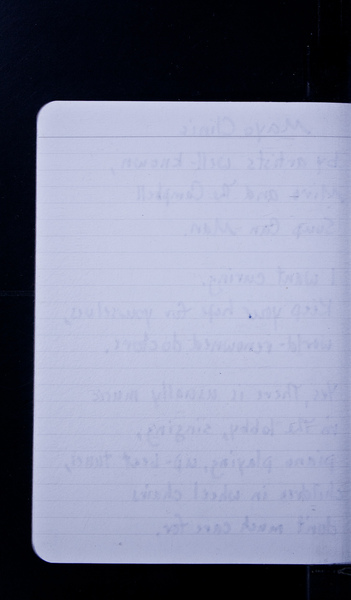 Mayo Clinic
by artists well-known,
Miro and the Campbell
Soup Can Man.
I want curing.
Keep your hope for yourselves,
world-renowned doctors.
Yes, there is usually music
in the lobby, singing,
piano playing, up-beat tunes,
children in wheel chairs
don't much care for.